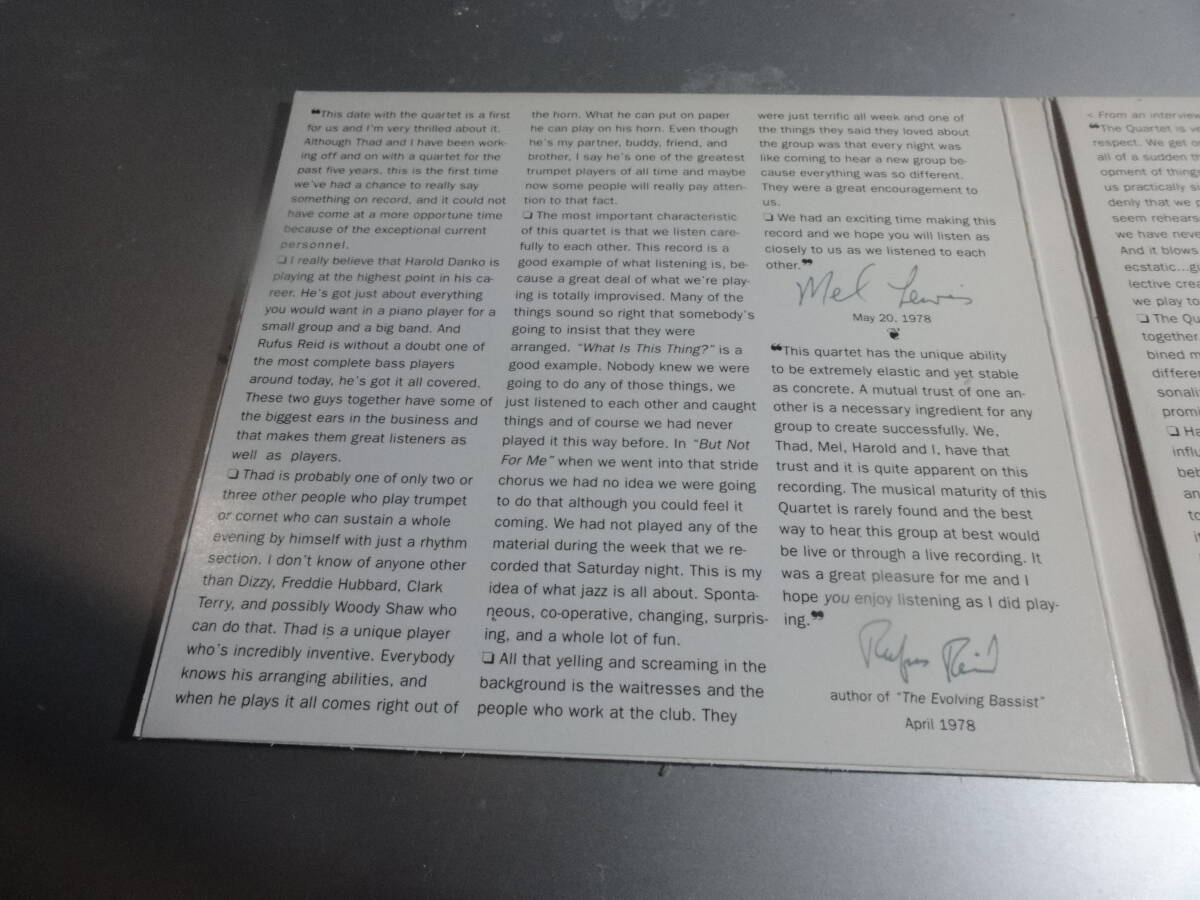 ❝This date with the quartet is a first
for us and I'm very thrilled about it.
Although Thad and I have been work-
ing off and on with a quartet for the
past five years, this is the first time
we've had a chance to really say
something on record, and it could not
have come at a more opportune time
because of the exceptional current
personnel.
❏ I really believe that Harold Danko is
playing at the highest point in his ca-
reer. He's got just about everything
you would want in a piano player for a
small group and a big band. And
Rufus Reid is without a doubt one of
the most complete bass players
around today, he's got it all covered.
These two guys together have some of
the biggest ears in the business and
that makes them great listeners as
well as players.
❏ Thad is probably one of only two or
three other people who play trumpet
or cornet who can sustain a whole
evening by himself with just a rhythm
section. I don't know of anyone other
than Dizzy, Freddie Hubbard, Clark
Terry, and possibly Woody Shaw who
can do that. Thad is a unique player
who's incredibly inventive. Everybody
knows his arranging abilities, and
when he plays it all comes right out of
the horn. What he can put on paper
he can play on his horn. Even though
he's my partner, buddy, friend, and
brother, I say he's one of the greatest
trumpet players of all time and maybe
now some people will really pay atten-
tion to that fact.
❏ The most important characteristic
of this quartet is that we listen care-
fully to each other. This record is a
good example of what listening is, be-
cause a great deal of what we're play-
ing is totally improvised. Many of the
things sound so right that somebody's
going to insist that they were
arranged. "What Is This Thing?" is a
good example. Nobody knew we were
going to do any of those things, we
just listened to each other and caught
things and of course we had never
played it this way before. In "But Not
For Me" when we went into that stride
chorus we had no idea we were going
to do that although you could feel it
coming. We had not played any of the
material during the week that we re-
corded that Saturday night. This is my
idea of what jazz is all about. Sponta-
neous, co-operative, changing, surpris-
ing, and a whole lot of fun.
❏ All that yelling and screaming in the
background is the waitresses and the
people who work at the club. They
were just terrific all week and one of
the things they said they loved about
the group was that every night was
like coming to hear a new group be-
cause everything was so different.
They were a great encouragement to
us.
❏ We had an exciting time making this
record and we hope you will listen as
closely to us as we listened to each
other.❞
Mel Lewis
May 20, 1978
❝This quartet has the unique ability
to be extremely elastic and yet stable
as concrete. A mutual trust of one an-
other is a necessary ingredient for any
group to create successfully. We,
Thad, Mel, Harold and I, have that
trust and it is quite apparent on this
recording. The musical maturity of this
Quartet is rarely found and the best
way to hear this group at best would
be live or through a live recording. It
was a great pleasure for me and I
hope you enjoy listening as I did play-
ing.❞
Rufus Reid
author of "The Evolving Bassist"
April 1978
< From an interview
❝The Quartet is
respect. We get
all of a sudden
opment of things
us practically
denly that we
seem rehears
we have neve
And it blows
ecstatic...
lective crea
we play to
❏ The Qu
together
bined m
differen
sonali
promi
❏ Ha
influ
bet
an
to